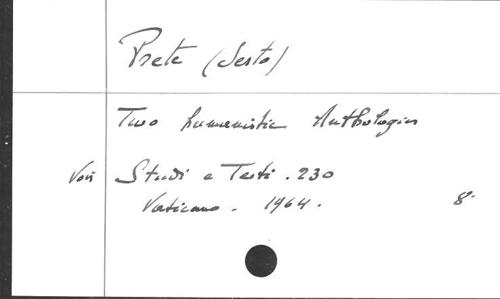 Prete (Sesto)
Two humanistic Anthologies
Voir Studi e Testi. 230
Vaticano. 1964. 8°